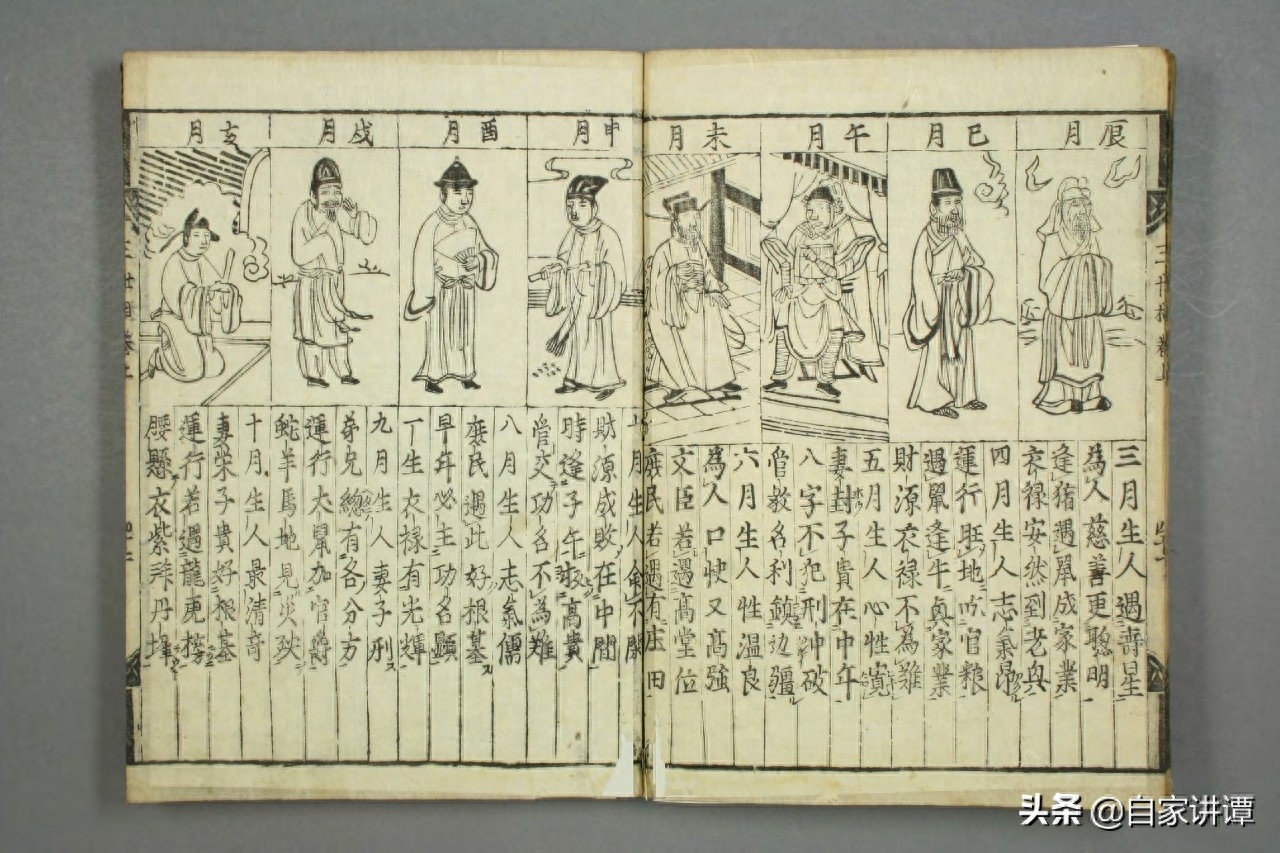 辰月
巳月
午月
未月
申月
酉月
戌月
亥月
三月生人遇壽星
為人慈善更聰明
逢猪遇鼠成家業
衣祿安然到老與
四月生人志氣昂
運行旺地吃官粮
遇鼠逢牛真家業
財源衣祿不為難
五月生人心性寬
妻封子貴在中年
八字不犯刑冲破
管教名利鎮边疆
六月生人性温良
為人口快又高強
文臣若遇高堂位
庶民若遇有庄田
七月生人命不閑
財源成敗在中間
時逢子午財高貴
管交功名不為難
八月生人志氣儒
庶民遇此好根基
早年必主功名顯
一生衣祿有光輝
九月生人妻子刑
弟兄總有各分方
運行犬鼠加官爵
蛇羊馬地見災殃
十月生人最清奇
妻榮子貴好根基
運行若遇龍更
腰懸衣紫拜丹墀
三世相卷上
三世相卷上
头条 @自家讲谭